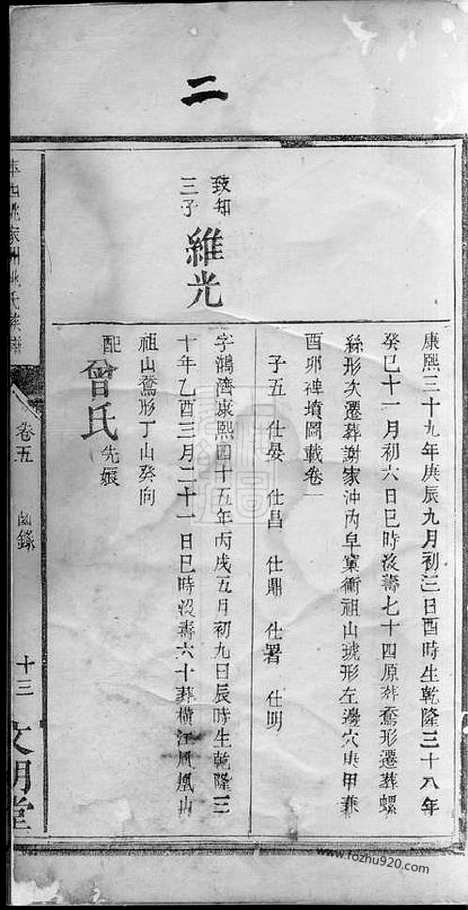 二
康熙三十九年庚辰九月初三日酉時生乾隆三十八年
癸巳十一月初六日巳時沒壽七十四原葬鶩形遷葬螺
絲形次遷葬謝家沖內皁窠衝祖山琥形左邊穴庚甲兼
酉卯碑墳圖載卷一
子五 仕晏 仕昌 仕鼎 仕署 仕明
致知
三子
維光
字鴻濟康熙四十五年丙戌五月初九日辰時生乾隆三
十年乙酉三月二十一日巳時沒壽六十葬橫江鳳凰山
祖山鶩形丁山癸向
配曾氏先娘
卷五
齒錄
十三
文明堂
www.fozhu920.com